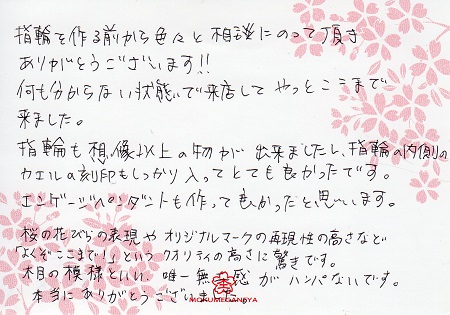 指輪を作る前から色々と相談にのって頂き
ありがとうございます!!
何も分からない状態で来店してやっとここまで
来ました。
指輪も想像以上の物が出来ましたし、指輪の内側の
カエルの刻印もしっかり入ってとても良かったです。
エンゲージペンダントも作って良かったと思います。
桜の花びらの表現やオリジナルマークの再現性の高さなど
「よくぞここまで!」というクオリティの高さに驚きです。
木目の模様といい、唯一無二感がハンパないです。
本当にありがとうございました。
MOKUMEGANEYA